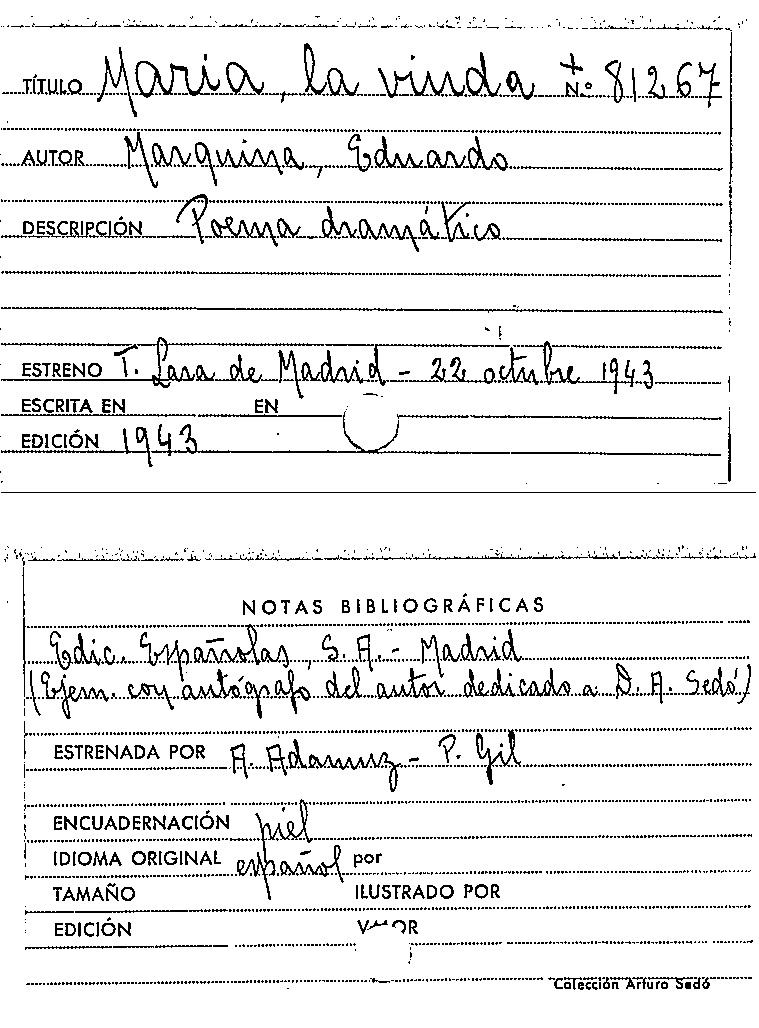 TÍTULO Maria, la viuda + N.º 81267
AUTOR Marquina, Eduardo
DESCRIPCIÓN Poema dramático
ESTRENO T. Lara de Madrid - 22 octubre 1943
ESCRITA EN EN
EDICIÓN 1943
NOTAS BIBLIOGRÁFICAS
Edic. Españolas, S. A. - Madrid
(Ejem. con autógrafo del autor dedicado a D. A. Sedó)
ESTRENADA POR A. Adamuz - P. Gil
ENCUADERNACIÓN piel
IDIOMA ORIGINAL español por
TAMAÑO ILUSTRADO POR
EDICIÓN VALOR
Colección Arturo Sedó